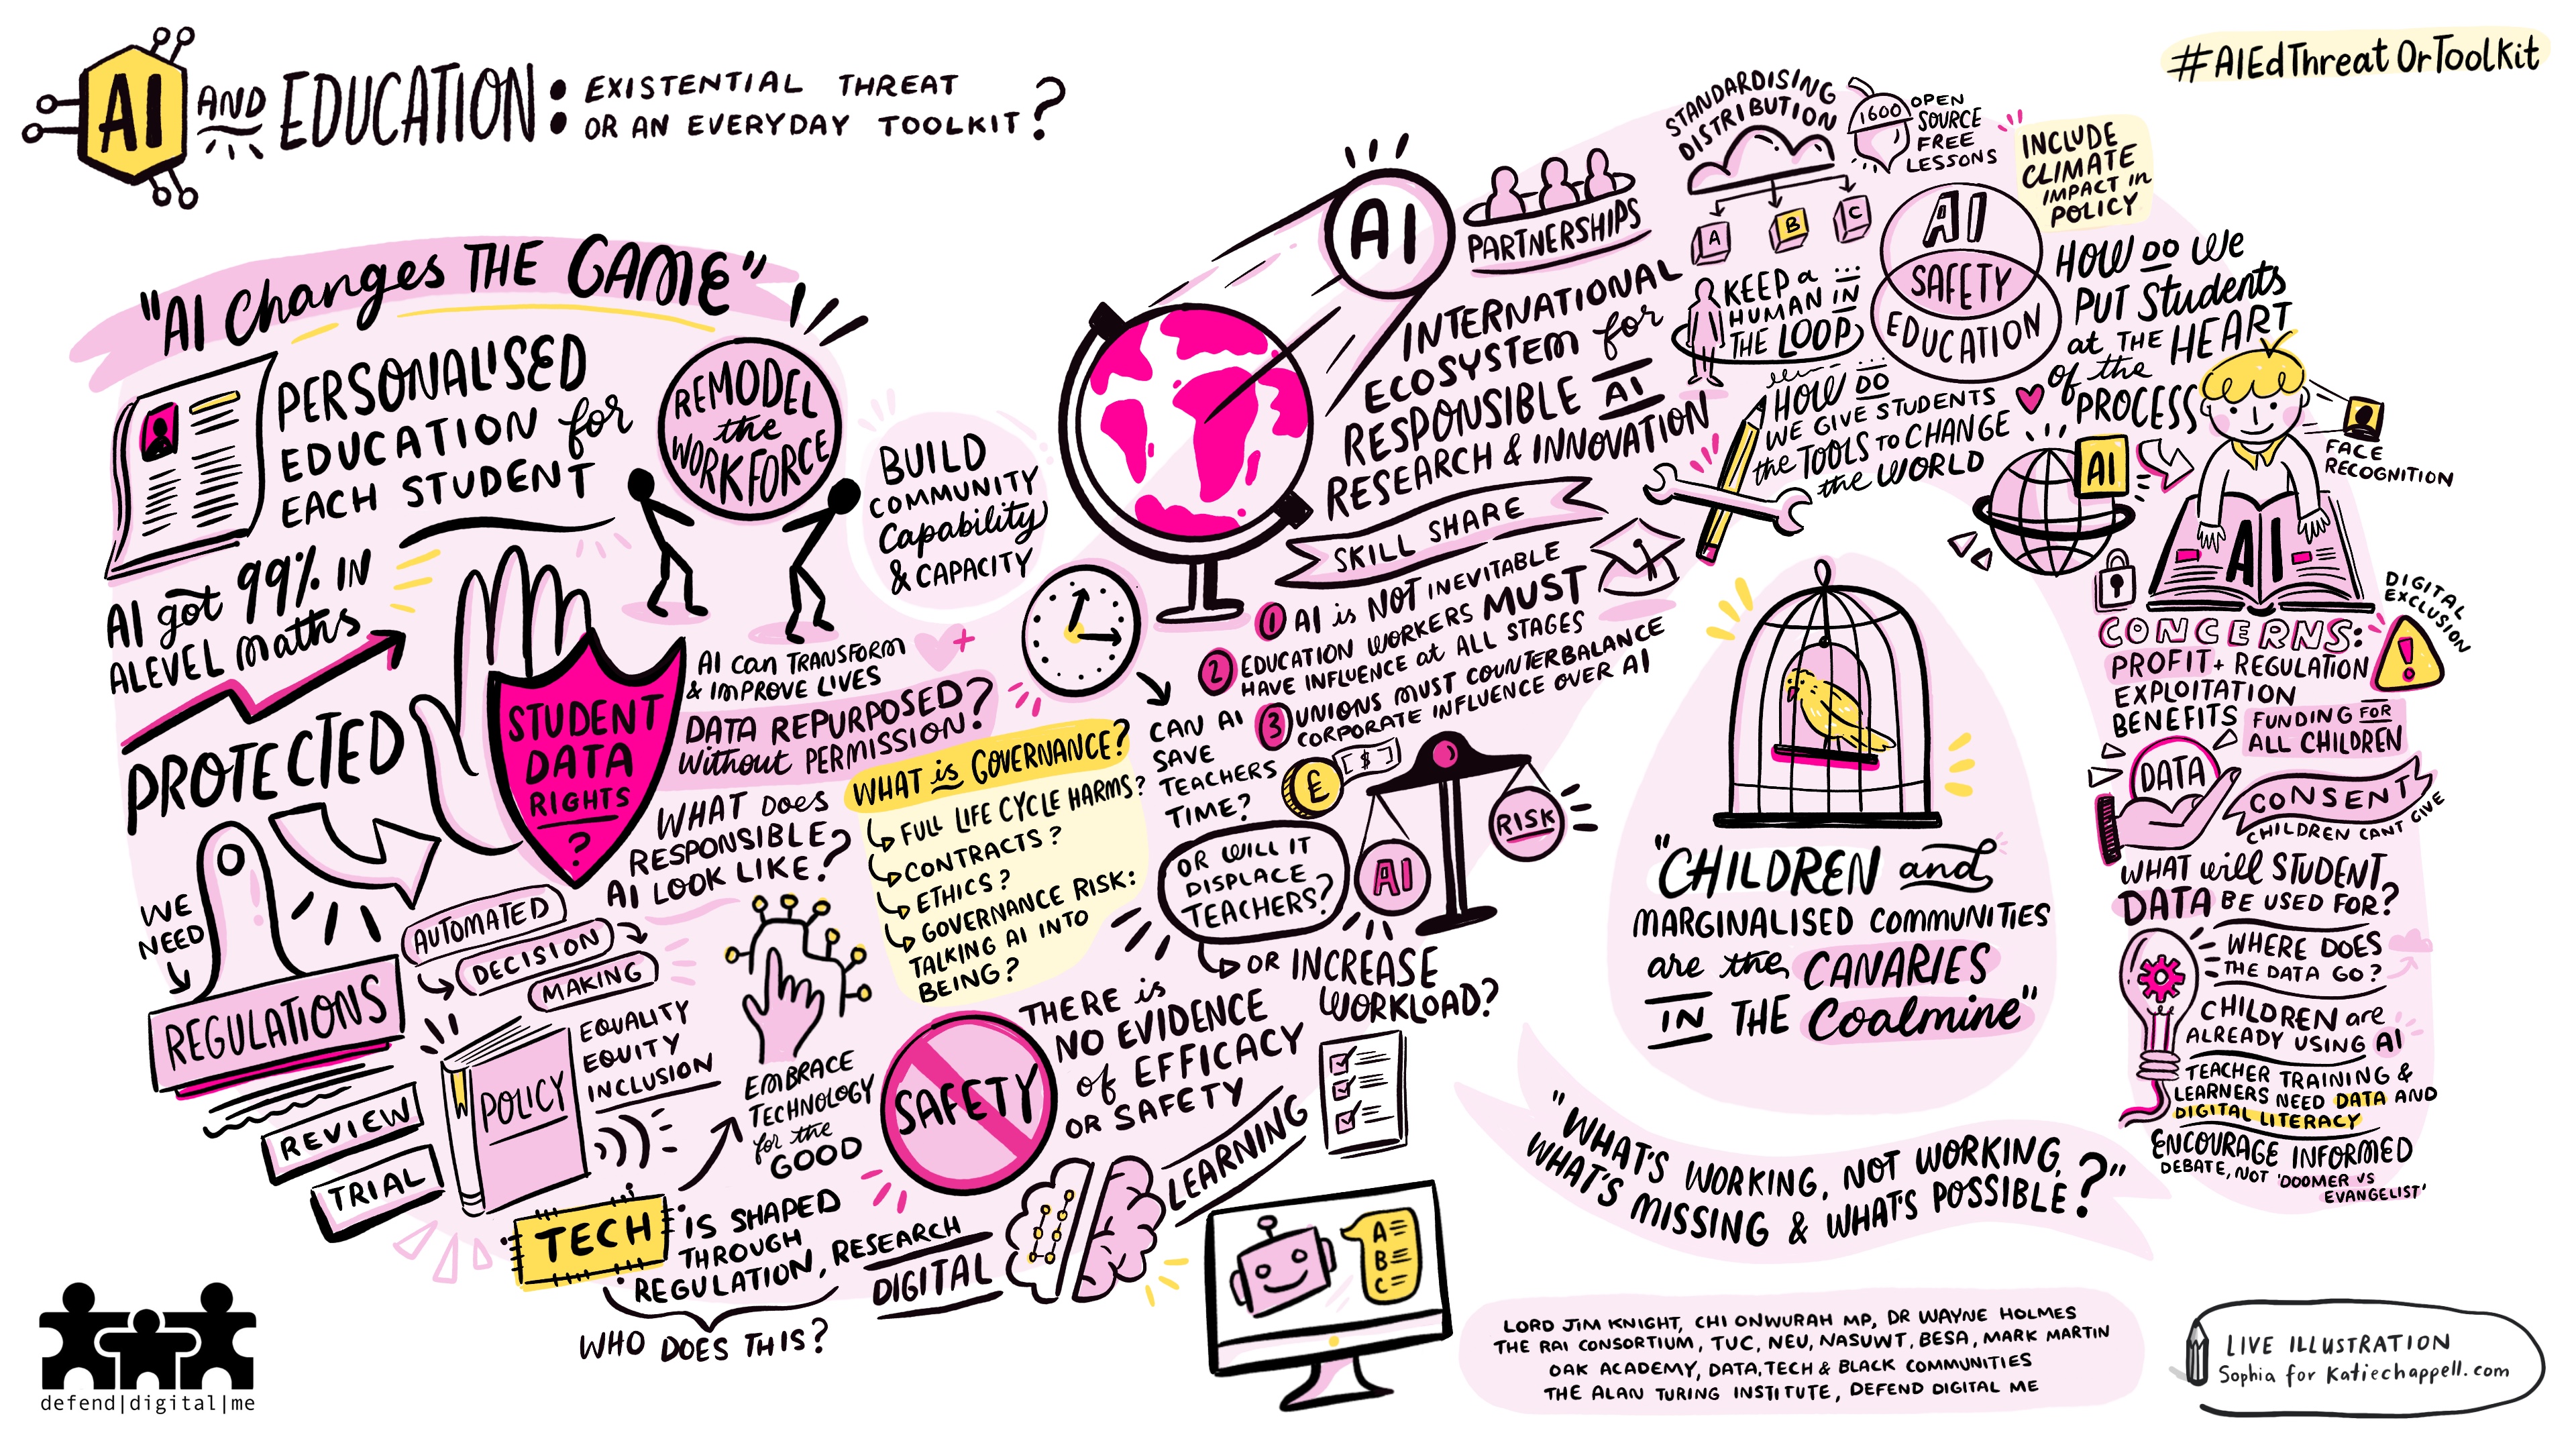 AI AND EDUCATION: EXISTENTIAL THREAT
OR AN EVERYDAY TOOLKIT?
#AIEdThreatOrToolKit
"AI Changes THE GAME"
PERSONALISED
EDUCATION for
EACH STUDENT
REMODEL
the
WORKFORCE
BUILD
COMMUNITY
Capability
& CAPACITY
AI got 99% IN
ALEVEL Maths
PROTECTED
STUDENT
DATA
RIGHTS
?
AI can TRANSFORM
& IMPROVE LIVES
DATA REPURPOSED?
without PERMISSION?
WHAT DOES
RESPONSIBLE
AI LOOK LIKE?
WHAT is GOVERNANCE?
FULL LIFE CYCLE HARMS?
CONTRACTS?
ETHICS?
GOVERNANCE RISK:
TALKING AI INTO
BEING?
WE
NEED
REGULATIONS
REVIEW
TRIAL
AUTOMATED
DECISION
MAKING
POLICY
EQUALITY
EQUITY
INCLUSION
EMBRACE
TECHNOLOGY
for the
GOOD
TECH IS SHAPED
THROUGH
REGULATION, RESEARCH
WHO DOES THIS?
SAFETY
THERE is
NO EVIDENCE
of EFFICACY
OR SAFETY
DIGITAL
LEARNING
A
B
C
AI
PARTNERSHIPS
INTERNATIONAL
ECOSYSTEM for
RESPONSIBLE AI
RESEARCH & INNOVATION
SKILL SHARE
1 AI is NOT INEVITABLE
2 EDUCATION WORKERS MUST
HAVE INFLUENCE at ALL STAGES
3 UNIONS MUST COUNTERBALANCE
CORPORATE INFLUENCE OVER AI
CAN AI
SAVE
TEACHERS
TIME?
£
$
AI
RISK
OR WILL IT
DISPLACE
TEACHERS?
OR INCREASE
WORKLOAD?
STANDARDISING
DISTRIBUTION
A
B
C
1600 OPEN
SOURCE
FREE
LESSONS
INCLUDE
CLIMATE
IMPACT in
POLICY
KEEP a
HUMAN IN
THE LOOP
AI
SAFETY
EDUCATION
HOW DO WE
PUT Students
at THE HEART
of the
PROCESS
HOW DO
WE GIVE STUDENTS
the TOOLS TO CHANGE
the WORLD
AI
FACE
RECOGNITION
AI
DIGITAL
EXCLUSION
!
CONCERNS:
PROFIT + REGULATION
EXPLOITATION
BENEFITS
FUNDING FOR
ALL CHILDREN
DATA
CONSENT
CHILDREN CANT GIVE
WHAT will STUDENT
DATA BE USED FOR?
WHERE DOES
THE DATA GO?
CHILDREN are
ALREADY USING AI
TEACHER TRAINING &
LEARNERS NEED DATA AND
DIGITAL LITERACY
ENCOURAGE INFORMED
DEBATE, NOT 'DOOMER VS
EVANGELIST'
"CHILDREN and
MARGINALISED COMMUNITIES
are the CANARIES
IN THE Coalmine"
"WHAT'S WORKING, NOT WORKING,
WHAT'S MISSING & WHAT'S POSSIBLE?"
LORD JIM KNIGHT, CHI ONWURAH MP, DR WAYNE HOLMES
THE RAI CONSORTIUM, TUC, NEU, NASUWT, BESA, MARK MARTIN
OAK ACADEMY, DATA, TECH & BLACK COMMUNITIES
THE ALAN TURING INSTITUTE, DEFEND DIGITAL ME
LIVE ILLUSTRATION
Sophia for Katiechappell.com
defend|digital|me